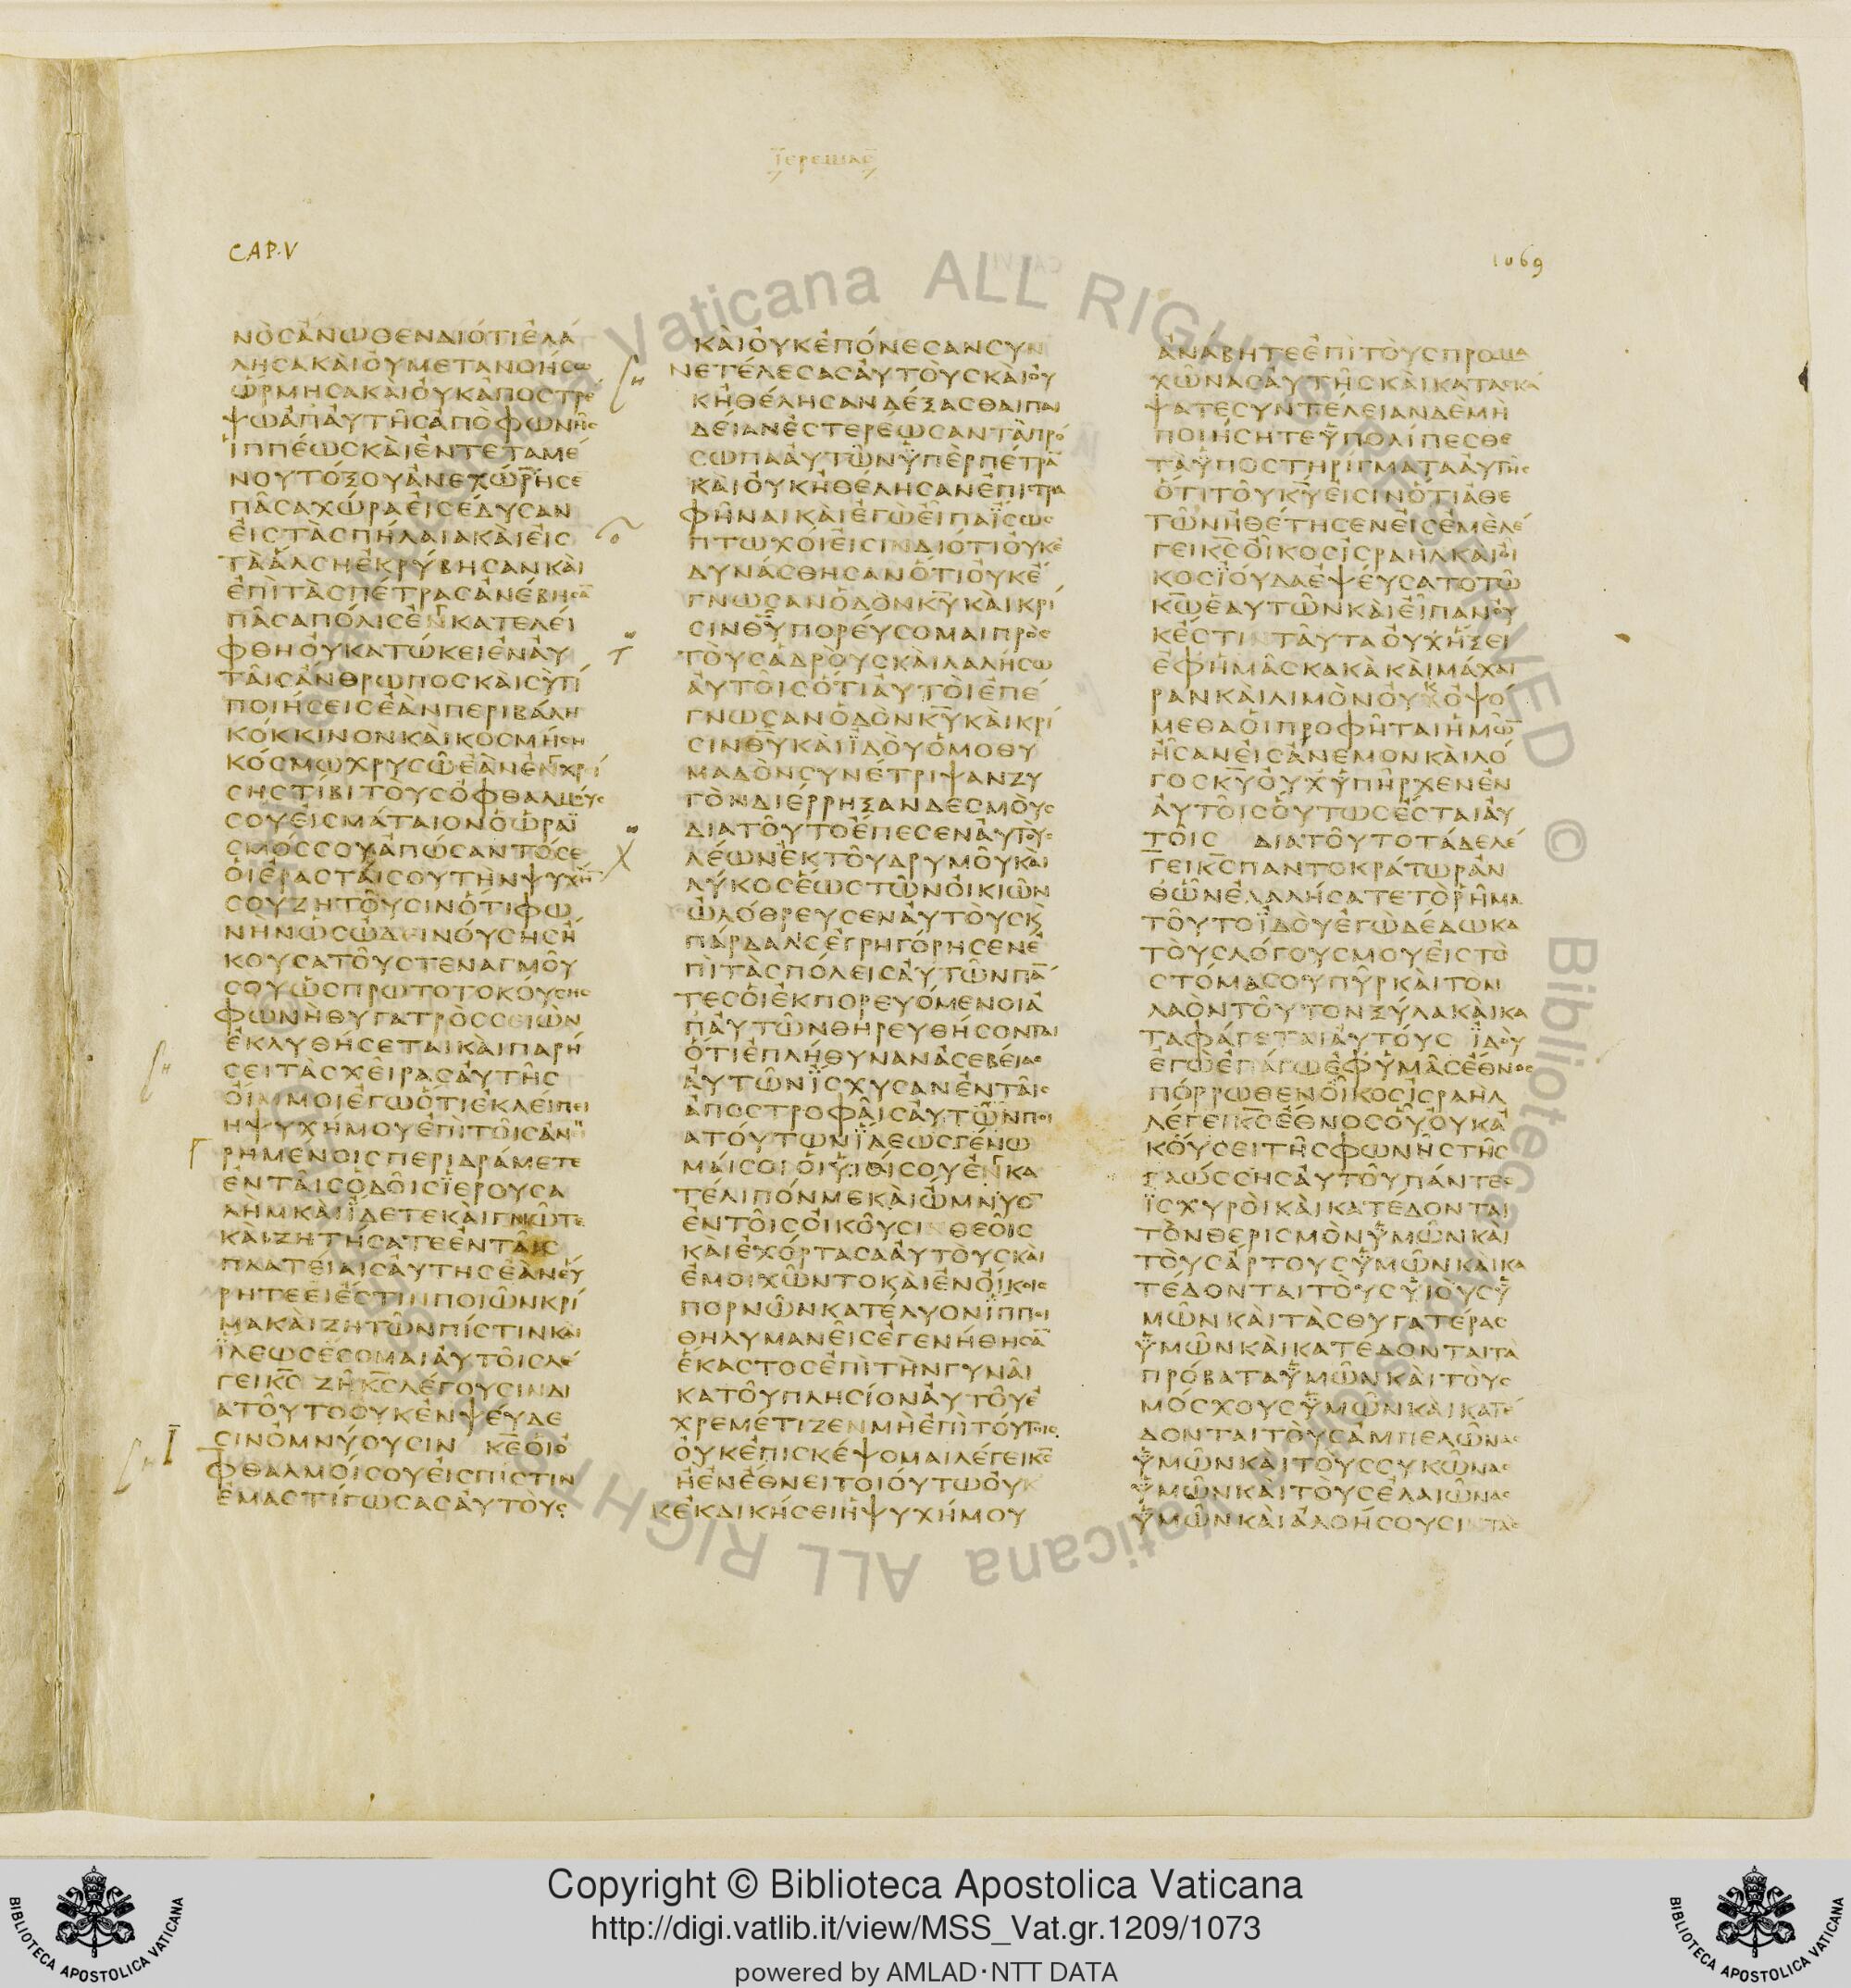 Ἰερεμίας
CAP. V
1069
ΝΟΣΑΝΩΘΕΝΔΙΟΤΙΕΛΑ
ΛΗΣΑΚΑΙΟΥΜΕΤΑΝΟΗΣΩ
ΩΡΜΗΣΑΚΑΙΟΥΚΑΠΟΣΤΡΕ
ΨΩΑΠΑΥΤΗΣΑΠΟΦΩΝΗΣ
ΙΠΠΕΩΣΚΑΙΕΝΤΕΤΑΜΕ
ΝΟΥΤΟΞΟΥΑΝΕΧΩΡΗΣΕ
ΠΑΣΑΧΩΡΑΕΙΣΕΔΥΣΑΝ
ΕΙΣΤΑΣΠΗΛΑΙΑΚΑΙΕΙΣ
ΤΑΑΛΣΗΕΚΡΥΒΗΣΑΝΚΑΙ
ΕΠΙΤΑΣΠΕΤΡΑΣΑΝΕΒΗΣΑ̅
ΠΑΣΑΠΟΛΙΣΕΝΚΑΤΕΛΕΙ
ΦΘΗΟΥΚΑΤΩΚΕΙΕΝΑΥ
ΤΑΙΣΑΝΘΡΩΠΟΣΚΑΙΣΥΤΙ
ΠΟΙΗΣΕΙΣΕΑΝΠΕΡΙΒΑΛΗ
ΚΟΚΚΙΝΟΝΚΑΙΚΟΣΜΗΣΗ
ΚΟΣΜΩΧΡΥΣΩΕΑΝΕΝΧΡΙ
ΣΗΣΤΙΒΙΤΟΥΣΟΦΘΑΛΜΟΥΣ
ΣΟΥΕΙΣΜΑΤΑΙΟΝΟΩΡΑΪ
ΣΜΟΣΣΟΥΑΠΩΣΑΝΤΟΣΕ
ΟΙΕΡΑΣΤΑΙΣΟΥΤΗΝΨΥΧΗ̅
ΣΟΥΖΗΤΟΥΣΙΝΟΤΙΦΩ
ΝΗΝΩΣΩΔΕΙΝΟΥΣΗΣΗ
ΚΟΥΣΑΤΟΥΣΤΕΝΑΓΜΟΥ
ΣΟΥΩΣΠΡΩΤΟΤΟΚΟΥΣΗΣ
ΦΩΝΗΘΥΓΑΤΡΟΣΣΕΙΩΝ
ΕΚΛΥΘΗΣΕΤΑΙΚΑΙΠΑΡΗ
ΣΕΙΤΑΣΧΕΙΡΑΣΑΥΤΗΣ
ΟΙΜΜΟΙΕΓΩΟΤΙΕΚΛΕΙΠΕΙ
ΗΨΥΧΗΜΟΥΕΠΙΤΟΙΣΑΝΗ
ΡΗΜΕΝΟΙΣΠΕΡΙΔΡΑΜΕΤΕ
ΕΝΤΑΙΣΟΔΟΙΣΪΕΡΟΥΣΑ
ΛΗΜΚΑΙΪΔΕΤΕΚΑΙΓΝΩΤΕ
ΚΑΙΖΗΤΗΣΑΤΕΕΝΤΑΙΣ
ΠΛΑΤΕΙΑΙΣΑΥΤΗΣΕΑΝΕΥ
ΡΗΤΕΕΙΕΣΤΙΝΠΟΙΩΝΚΡΙ
ΜΑΚΑΙΖΗΤΩΝΠΙΣΤΙΝΚΑΙ
ΪΛΕΩΣΕΣΟΜΑΙΑΥΤΟΙΣΛΕ
ΓΕΙΚ̅Σ̅ ΖΗΚ̅Σ̅ΛΕΓΟΥΣΙΝΔΙ
ΑΤΟΥΤΟΟΥΚΕΝΨΕΥΔΕ
ΣΙΝΟΜΝΥΟΥΣΙΝ Κ̅Ε̅ΟΙΟ
ΦΘΑΛΜΟΙΣΟΥΕΙΣΠΙΣΤΙΝ
ΕΜΑΣΤΙΓΩΣΑΣΑΥΤΟΥΣ
ΚΑΙΟΥΚΕΠΟΝΕΣΑΝΣΥΝ
ΝΕΤΕΛΕΣΑΣΑΥΤΟΥΣΚΑΙΟΥ
ΚΗΘΕΛΗΣΑΝΔΕΞΑΣΘΑΙΠΑΙ
ΔΕΙΑΝΕΣΤΕΡΕΩΣΑΝΤΑΠΡΟ
ΣΩΠΑΑΥΤΩΝΫΠΕΡΠΕΤΡΑ̅
ΚΑΙΟΥΚΗΘΕΛΗΣΑΝΕΠΙΤΡΑ
ΦΗΝΑΙΚΑΙΕΓΩΕΙΠΑΪΣΩΣ
ΠΤΩΧΟΙΕΙΣΙΝΔΙΟΤΙΟΥΚΕ
ΔΥΝΑΣΘΗΣΑΝΟΤΙΟΥΚΕ
ΓΝΩΣΑΝΟΔΟΝΚ̅Υ̅ΚΑΙΚΡΙ
ΣΙΝΘ̅Υ̅ΠΟΡΕΥΣΟΜΑΙΠΡΟΣ
ΤΟΥΣΑΔΡΟΥΣΚΑΙΛΑΛΗΣΩ
ΑΥΤΟΙΣΟΤΙΑΥΤΟΙΕΠΕ
ΓΝΩΣΑΝΟΔΟΝΚ̅Υ̅ΚΑΙΚΡΙ
ΣΙΝΘ̅Υ̅ΚΑΙΪΔΟΥΟΜΟΘΥ
ΜΑΔΟΝΣΥΝΕΤΡΙΨΑΝΖΥ
ΓΟΝΔΙΕΡΡΗΞΑΝΔΕΣΜΟΥΣ
ΔΙΑΤΟΥΤΟΕΠΕΣΕΝΑΥΤΟΥΣ
ΛΕΩΝΕΚΤΟΥΔΡΥΜΟΥΚΑΙ
ΛΥΚΟΣΕΩΣΤΩΝΟΙΚΙΩΝ
ΩΛΟΘΡΕΥΣΕΝΑΥΤΟΥΣΚ
ΠΑΡΔΑΛΙΣΕΓΡΗΓΟΡΗΣΕΝΕ
ΠΙΤΑΣΠΟΛΕΙΣΑΥΤΩΝΠΑ̅
ΤΕΣΟΙΕΚΠΟΡΕΥΟΜΕΝΟΙΑ
ΠΑΥΤΩΝΘΗΡΕΥΘΗΣΟΝΤΑΙ
ΟΤΙΕΠΛΗΘΥΝΑΝΑΣΕΒΕΙΑΣ
ΑΥΤΩΝΪΣΧΥΣΑΝΕΝΤΑΙΣ
ΑΠΟΣΤΡΟΦΑΙΣΑΥΤΩΝΠΟΙ
ΑΤΟΥΤΩΝΪΛΕΩΣΓΕΝΩ
ΜΑΙΣΟΙΟΙΥΙΟΙΣΟΥΕΝΚΑ
ΤΕΛΙΠΟΝΜΕΚΑΙΩΜΝΥΟ̅
ΕΝΤΟΙΣΟΙΚΟΥΣΙΝΘΕΟΙΣ
ΚΑΙΕΧΟΡΤΑΣΑΑΥΤΟΥΣΚΑΙ
ΕΜΟΙΧΩΝΤΟΚΑΙΕΝΟΙΚΟΙΣ
ΠΟΡΝΩΝΚΑΤΕΛΥΟΝΪΠΠΟΙ
ΘΗΛΥΜΑΝΕΙΣΕΓΕΝΗΘΗΣΑ̅
ΕΚΑΣΤΟΣΕΠΙΤΗΝΓΥΝΑΙ
ΚΑΤΟΥΠΛΗΣΙΟΝΑΥΤΟΥΕ
ΧΡΕΜΕΤΙΖΕΝΜΗΕΠΙΤΟΥΤΟΙΣ
ΟΥΚΕΠΙΣΚΕΨΟΜΑΙΛΕΓΕΙΚ̅Σ̅
ΗΕΝΕΘΝΕΙΤΟΙΟΥΤΩΟΥΚ
ΚΕΚΔΙΚΗΣΕΙΗΨΥΧΗΜΟΥ
ΑΝΑΒΗΤΕΕΠΙΤΟΥΣΠΡΟΜΑ
ΧΩΝΑΣΑΥΤΗΣΚΑΙΚΑΤΑΣΚΑ
ΨΑΤΕΣΥΝΤΕΛΕΙΑΝΔΕΜΗ
ΠΟΙΗΣΗΤΕΫΠΟΛΙΠΕΣΘΕ
ΤΑΫΠΟΣΤΗΡΙΓΜΑΤΑΑΥΤΗΣ
ΟΤΙΤΟΥΚ̅Υ̅ΕΙΣΙΝΟΤΙΑΘΕ
ΤΩΝΗΘΕΤΗΣΕΝΕΙΣΕΜΕΛΕ
ΓΕΙΚ̅Σ̅ΟΙΚΟΣΙΣΡΑΗΛΚΑΙΟΙ
ΚΟΣΪΟΥΔΑΕΨΕΥΣΑΤΟΤΩ
Κ̅Ω̅ΕΑΥΤΩΝΚΑΙΕΙΠΑΝΟΥ
ΚΕΣΤΙΝΤΑΥΤΑΟΥΧΗΞΕΙ
ΕΦΗΜΑΣΚΑΚΑΚΑΙΜΑΧΑΙ
ΡΑΝΚΑΙΛΙΜΟΝΟΥΚΟΨΟ
ΜΕΘΑΟΙΠΡΟΦΗΤΑΙΗΜΩ̅
ΗΣΑΝΕΙΣΑΝΕΜΟΝΚΑΙΛΟ
ΓΟΣΚ̅Υ̅ΟΥΧΫΠΗΡΧΕΝΕΝ
ΑΥΤΟΙΣΟΥΤΩΣΕΣΤΑΙΑΥ
ΤΟΙΣ ΔΙΑΤΟΥΤΟΤΑΔΕΛΕ
ΓΕΙΚ̅Σ̅ΠΑΝΤΟΚΡΑΤΩΡΑΝ
ΘΩΝΕΛΑΛΗΣΑΤΕΤΟΡΗΜΑ
ΤΟΥΤΟΪΔΟΥΕΓΩΔΕΔΩΚΑ
ΤΟΥΣΛΟΓΟΥΣΜΟΥΕΙΣΤΟ
ΣΤΟΜΑΣΟΥΠΥΡΚΑΙΤΟΝ
ΛΑΟΝΤΟΥΤΟΝΞΥΛΑΚΑΙΚΑ
ΤΑΦΑΓΕΤΑΙΑΥΤΟΥΣ ΪΔΟΥ
ΕΓΩΕΠΑΓΩΕΦΫΜΑΣΕΘΝΟΣ
ΠΟΡΡΩΘΕΝΟΙΚΟΣΙΣΡΑΗΛ
ΛΕΓΕΙΚ̅Σ̅ΕΘΝΟΣΟΥΟΥΚΑ
ΚΟΥΣΕΙΤΗΣΦΩΝΗΣΤΗΣ
ΓΛΩΣΣΗΣΑΥΤΟΥΠΑΝΤΕΣ
ΪΣΧΥΡΟΙΚΑΙΚΑΤΕΔΟΝΤΑΙ
ΤΟΝΘΕΡΙΣΜΟΝΫΜΩΝΚΑΙ
ΤΟΥΣΑΡΤΟΥΣΫΜΩΝΚΑΙΚΑ
ΤΕΔΟΝΤΑΙΤΟΥΣΫΙΟΥΣΫ
ΜΩΝΚΑΙΤΑΣΘΥΓΑΤΕΡΑΣ
ΫΜΩΝΚΑΙΚΑΤΕΔΟΝΤΑΙΤΑ
ΠΡΟΒΑΤΑΫΜΩΝΚΑΙΤΟΥΣ
ΜΟΣΧΟΥΣΫΜΩΝΚΑΙΚΑΤΕ
ΔΟΝΤΑΙΤΟΥΣΑΜΠΕΛΩΝΑΣ
ΫΜΩΝΚΑΙΤΟΥΣΣΥΚΩΝΑΣ
ΫΜΩΝΚΑΙΤΟΥΣΕΛΑΙΩΝΑΣ
ΫΜΩΝΚΑΙΑΛΟΗΣΟΥΣΙΝΤΑΣ
Vaticana ALL RIGHTS RESERVED © Biblioteca Apostolica Vaticana ALL RIGHT
Copyright © Biblioteca Apostolica Vaticana
http://digi.vatlib.it/view/MSS_Vat.gr.1209/1073
powered by AMLAD·NTT DATA
BIBLIOTECA APOSTOLICA VATICANA
BIBLIOTECA APOSTOLICA VATICANA